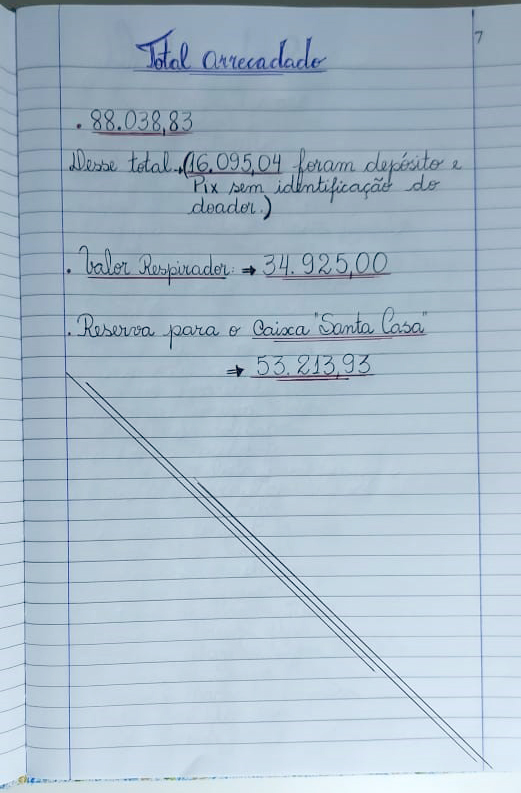 7
Total arrecadado
. 88.038,83
Desse total, (16.095,04 foram depósito e
Pix sem identificação do
doador.)
. Valor Respirador: ⇒ 34.925,00
. Reserva para o Caixa "Santa Casa"
⇒ 53.213,93